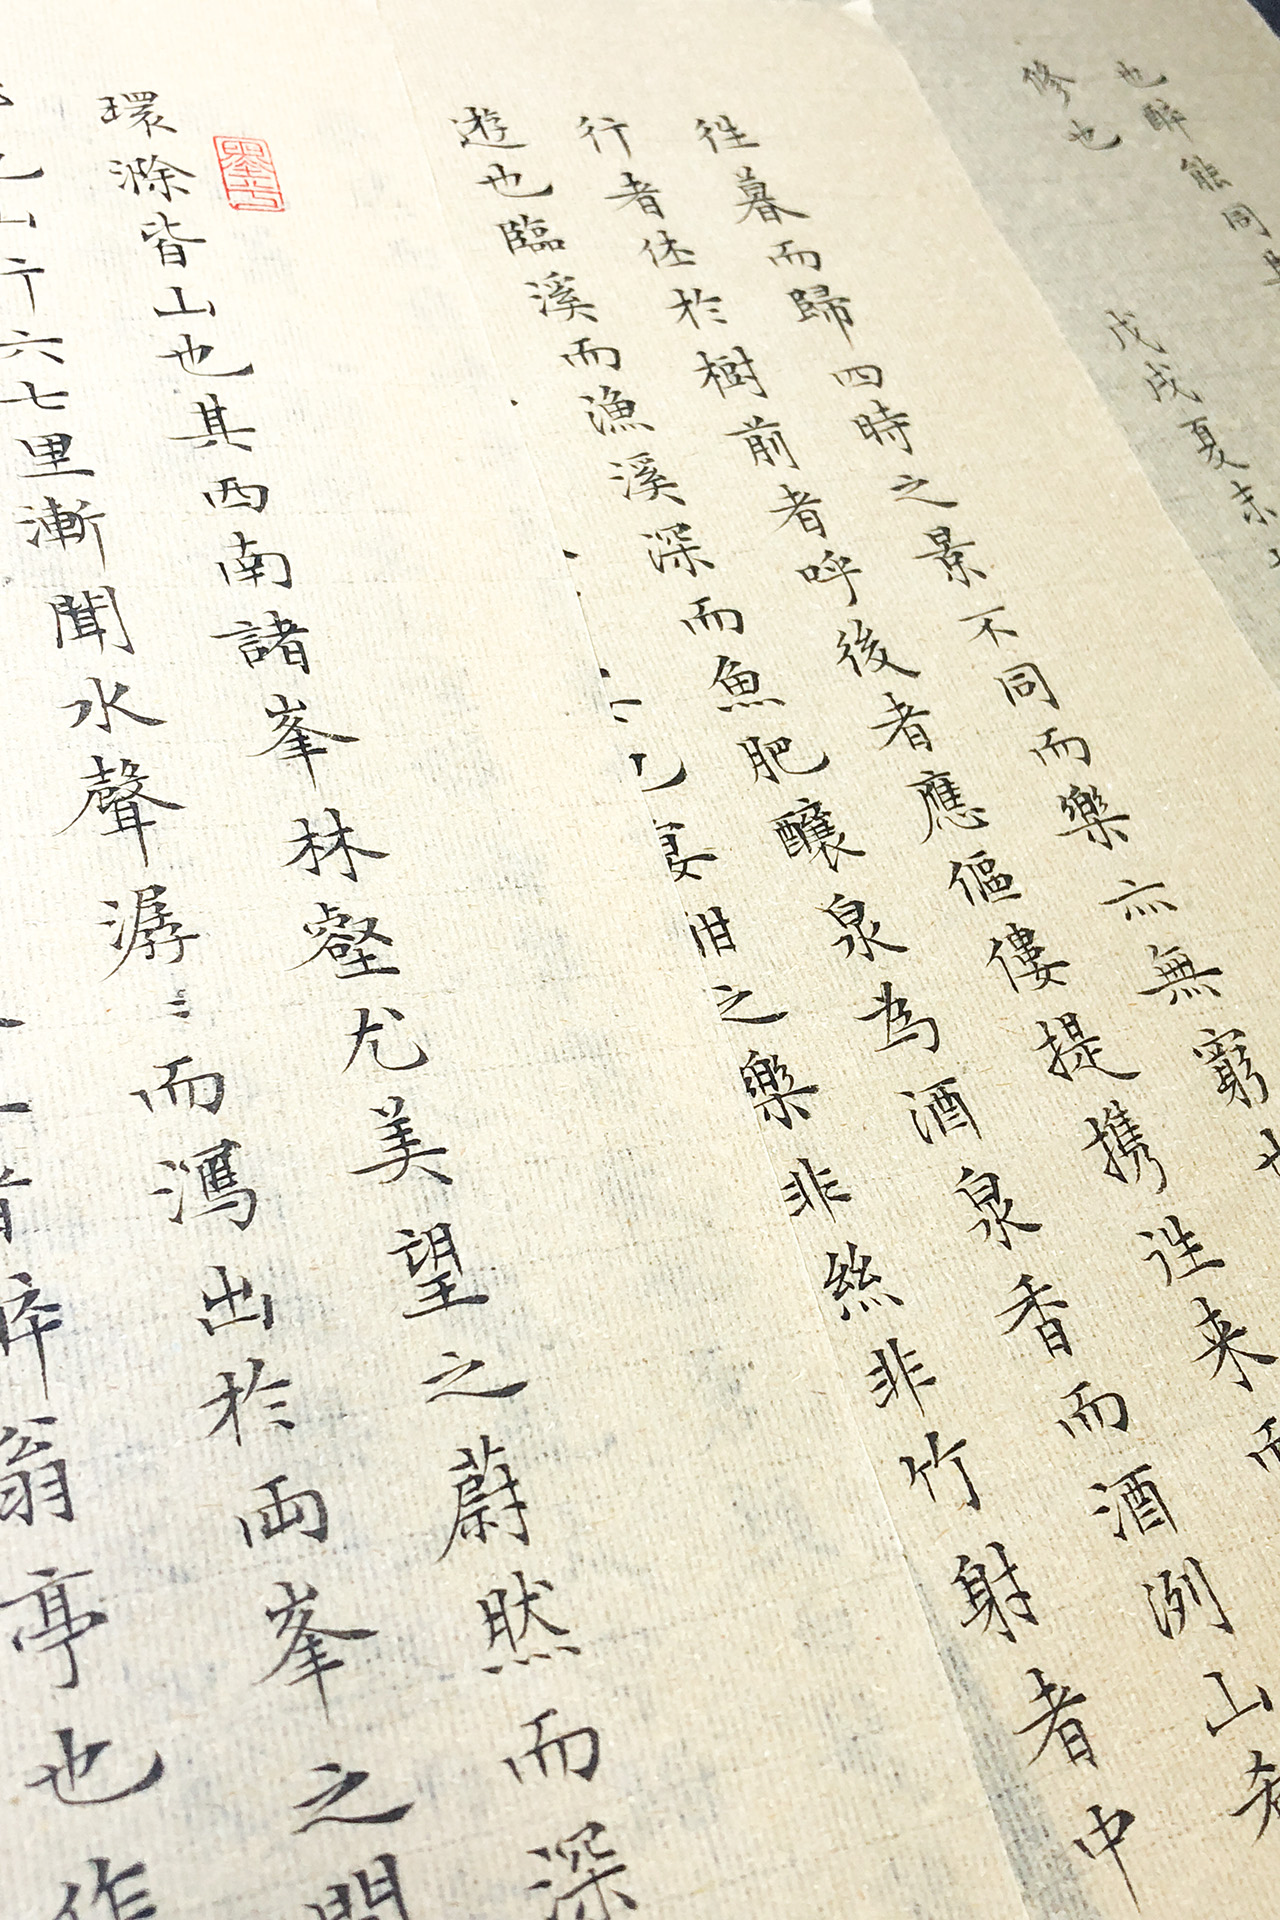 也醉能同其
修也
戊戌夏末
往暮而歸四時之景不同而樂亦無窮也
行者休於樹前者呼後者應傴僂提携往来而
遊也臨溪而漁溪深而魚肥釀泉為酒泉香而酒洌山肴
宴酣之樂非絲非竹射者中
環滁皆山也其西南諸峯林壑尤美望之蔚然而深
也山行六七里漸聞水聲潺〻而瀉出於兩峯之間
者醉翁亭也作